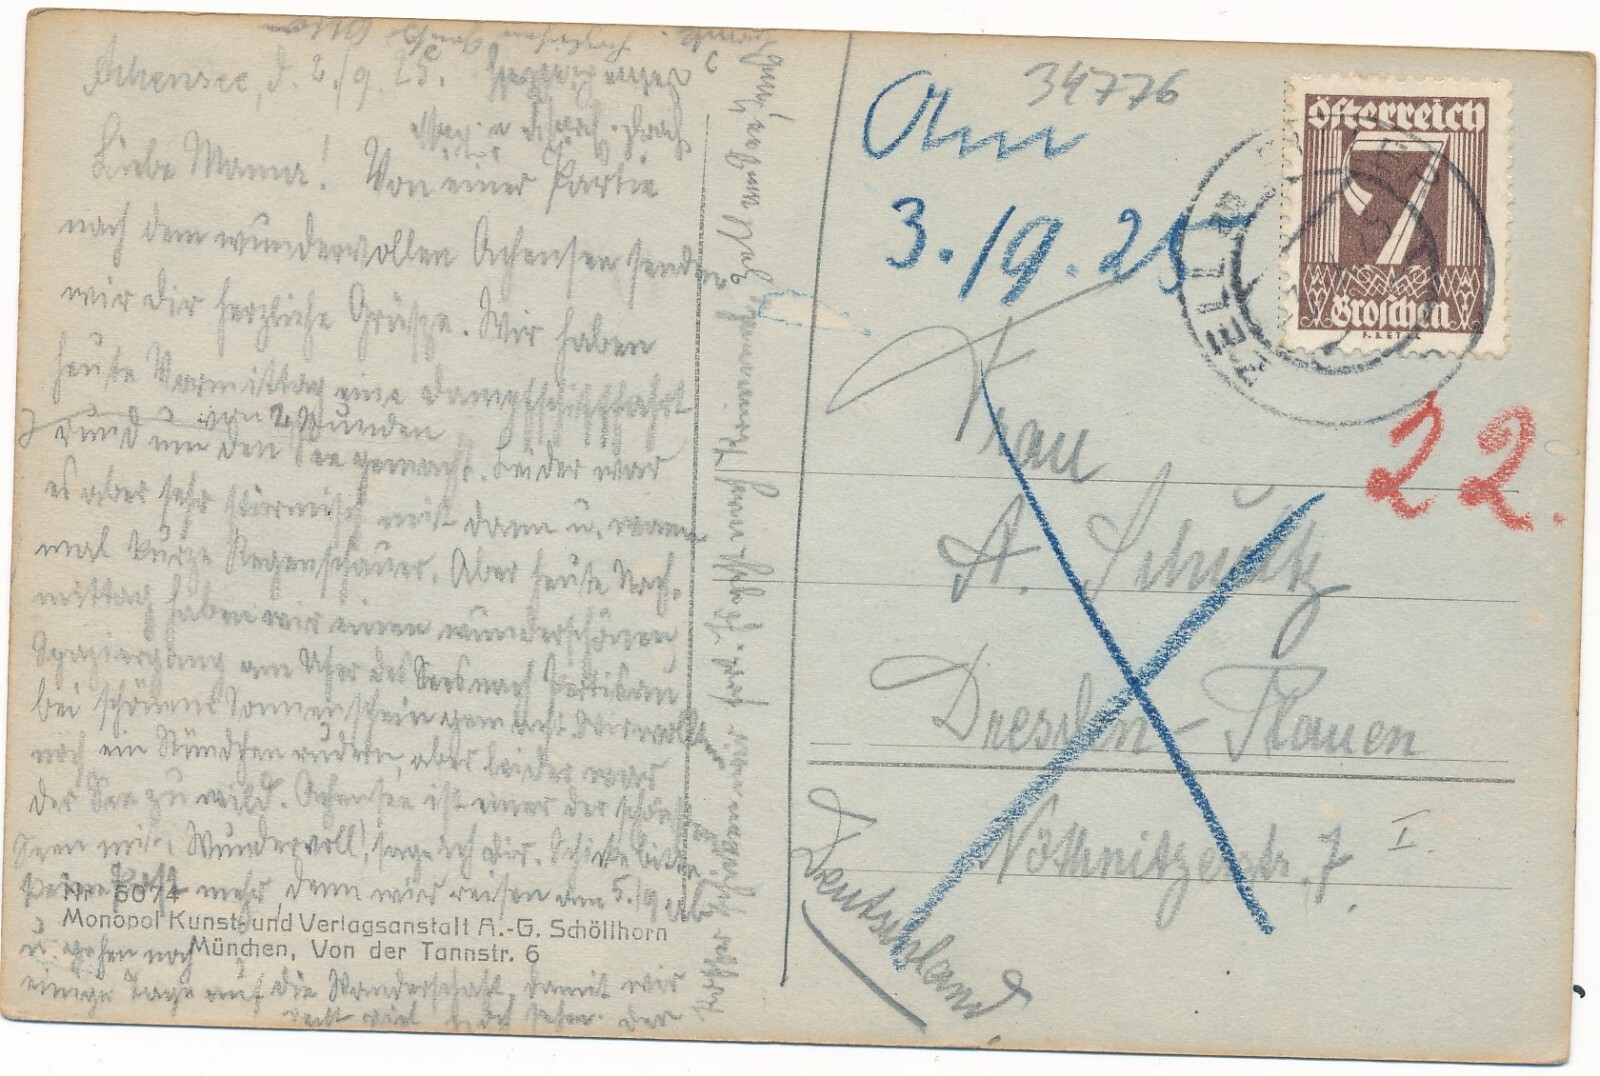 Achensee, d. 2./9. 25.
Liebe Mama! Von einer Partie
nach dem wundervollen Achensee senden
wir dir herzliche Grüsze. Wir haben
heute Vormittag eine Dampfschifffahrt
von 2 Stunden
rund um den See gemacht. Leider war
es aber sehr stürmisch mit dann u. wann
mal kurze Regenschauer. Aber heute Nach-
mittag haben wir einen wunderschönen
Spaziergang am Ufer des Sees nach Pertisau
bei schönem Sonnenschein gemacht. Wir wollten
noch ein Stündchen rudern, aber leider war
der See zu wild. Achensee ist einer der schönsten
Seen mit. Wundervoll! sage ich dir. Schicke bitte
keine Post mehr, denn wir reisen am 5./9. ab
u. gehen noch
einige Tage auf die Wanderschaft, damit wir
recht viel noch sehen. Den
Nr 6074
Monopol Kunst- und Verlagsanstalt A.-G. Schöllhorn
München, Von der Tannstr. 6
34776
An
3./9. 25
Österreich
7
Groschen
ZELL A.
22.
Frau
A. Schultz
Dresden-Plauen
Nöthnitzerstr. 7. I.
Deutschland.